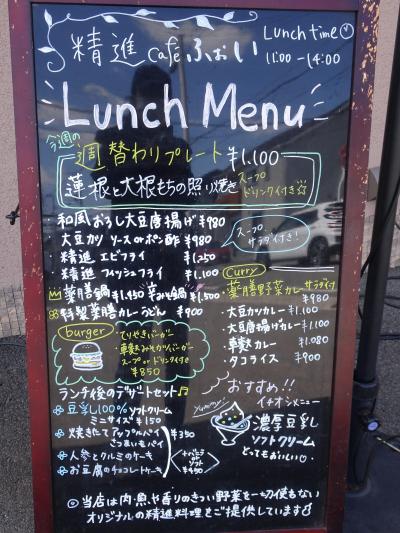 精進cafeふぉい
Lunch time
11:00 - 14:00
Lunch Menu
今週の
週替わりプレート ¥1,100
蓮根と大根もちの照り焼き
スープ
ドリンク付き☆
和風おろし大豆唐揚げ ¥980
・大豆カツ ソースorポン酢 ¥980
・精進 エビフライ ¥1,250
・精進 フィッシュフライ ¥1,100
スープ
サラダ付き!
薬膳鍋 ¥1,450 辛みそ鍋 ¥1,500
特製薬膳カレーうどん ¥900
Curry
薬膳野菜カレー サラダ付
¥980
・大豆カツカレー ¥1,100
・大豆唐揚げカレー ¥1,100
・車麩カレー ¥1,080
・タコライス ¥900
burger
・てりやきバーガー
・車麩みそカツバーガー
スープorドリンク付き
¥850
ランチ後のデザートセット♫
豆乳100%ソフトクリーム
ミニサイズ ¥150
焼きたてアップルパイ
さつまいもパイ
¥350
人参とクルミのケーキ
お豆腐のチョコレートケーキ
ソフト
¥450
おすすめ!!
イチオシメニュー
yummy!
濃厚豆乳
ソフトクリーム
とってもおいしい♡
◎当店は肉・魚や香りのきつい野菜を一切使もない
オリジナルの精進料理をご提供しています